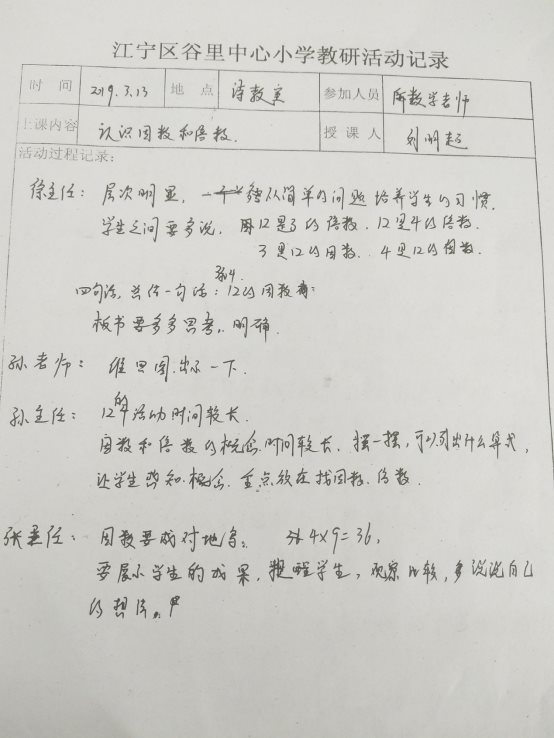 江宁区谷里中心小学教研活动记录
时 间 2019.3.13 地 点 教室 参加人员 数学老师
上课内容 认识因数和倍数. 授 课 人 刘明
活动过程记录:
徐主任: 层次明显, 从简单的问题 培养学生的习惯.
学生之间要多说, 12是3的倍数, 12是4的倍数.
3是12的因数. 4是12的因数.
四句话, 总结一句话: 12的因数有: 3和4.
板书要多多思考, 明确.
孙老师: 维思图, 出示一下.
孙主任: 12的活动时间较长.
因数和倍数的概念时间较长. 摆一摆, 可以列出什么算式,
让学生感知概念. 重点放在找因数. 倍数.
张主任: 因数要成对地写. 4×9=36,
要展示学生的成果, 提醒学生, 观察比较, 多说说自己
的想法.